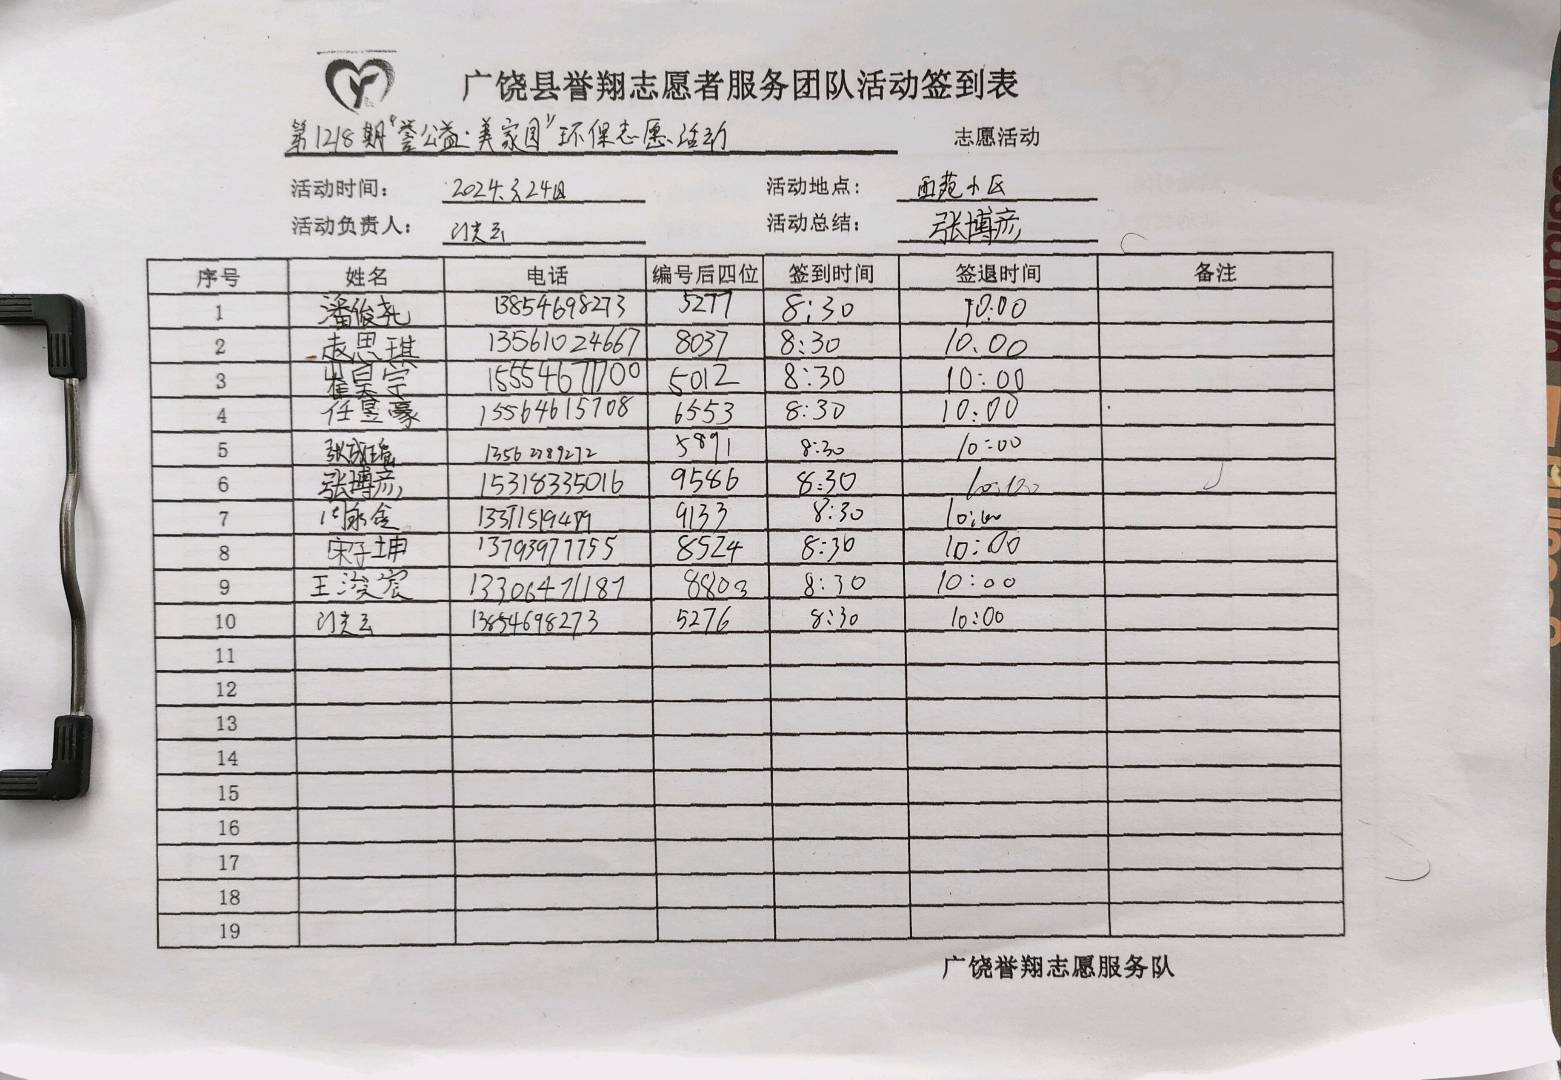 广饶县誉翔志愿者服务团队活动签到表
第1218期“誉公益·美家园”环保志愿活动 志愿活动
活动时间： 2024.3.24日 活动地点： 西苑小区
活动负责人： 活动总结： 张博彦
序号 姓名 电话 编号后四位 签到时间 签退时间 备注
1 潘俊尧 13854698273 5277 8:30 10:00
2 赵思琪 13561024667 8037 8:30 10.00
3 崔昊宇 15554671700 5012 8:30 10:00
4 任昱豪 15564615708 6553 8:30 10:00
5 5891 8:30 10:00
6 张博彦 15318335016 9586 8:30 10:00
7 9133 8:30 10:00
8 宋子坤 13793977755 8524 8:30 10:00
9 王浚宸 13306471187 8803 8:30 10:00
10 13854698273 5276 8:30 10:00
11
12
13
14
15
16
17
18
19
广饶誉翔志愿服务队